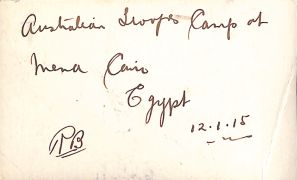 Australian Troops Camp at
Mena Cairo
Egypt
12.1.15
RB